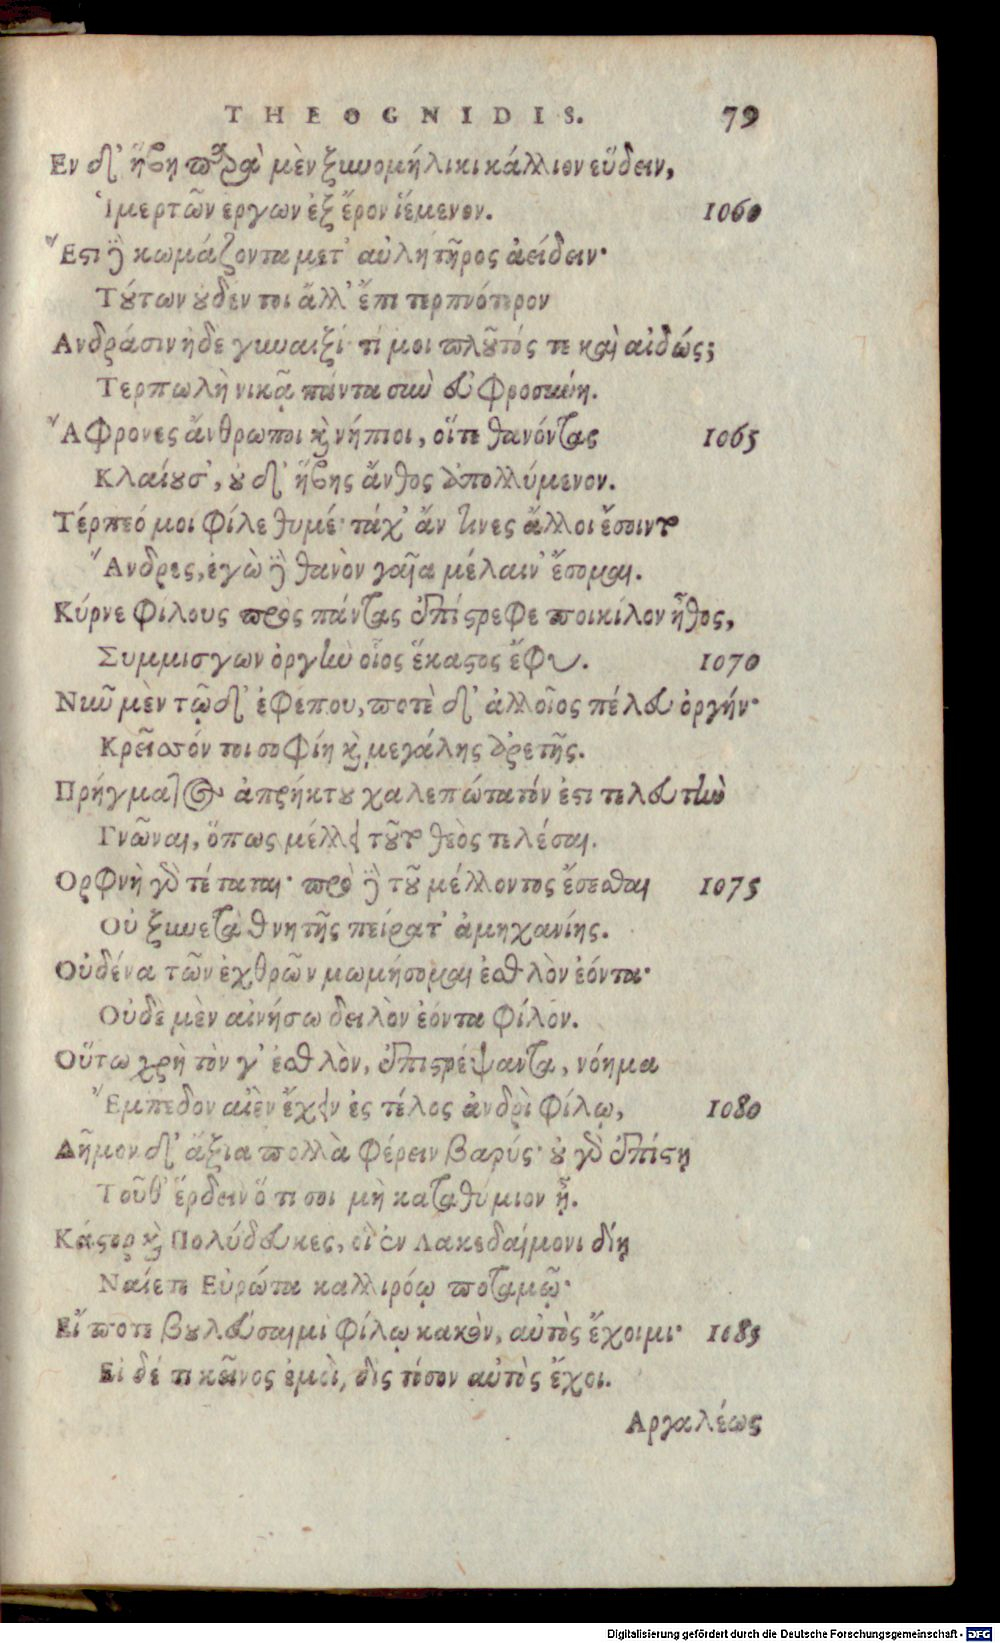 THEOGNIDIS. 79
Εν δ' ἥβῃ πάρα μὲν ξυνομήλικι κάλλιον εὕδειν,
Ἱμερτῶν ἐργων ἐξ ἔρον ἱέμενον. 1060
Ἔστι δὲ κωμάζοντα μετ' αὐλητῆρος ἀείδειν·
Τούτων οὐδὲν τοι ἄλλ' ἔπι τερπνότερον
Ανδράσιν ἠδὲ γυναιξί· τί μοι πλοῦτός τε καὶ αἰδώς;
Τερπωλὴ νικᾷ πάντα σὺν εὐφροσύνῃ.
Ἄφρονες ἄνθρωποι καὶ νήπιοι, οἵτε θανόντας 1065
Κλαίουσ', οὐ δ' ἥβης ἄνθος ἀπολλύμενον.
Τέρπεό μοι φίλε θυμέ· τάχ' ἄν τινες ἄλλοι ἔσονται
Ἄνδρες, ἐγὼ δὲ θανὸν γαῖα μέλαιν' ἔσομαι.
Κύρνε φίλους πρὸς πάντας ἐπίστρεφε ποικίλον ἦθος,
Συμμισγων ὀργὴν οἷος ἕκαστος ἔφυ. 1070
Νῦν μὲν τῷ δ' ἐφέπου, ποτὲ δ' ἀλλοῖος πέλευ ὀργήν·
Κρεῖσσόν τοι σοφίη καὶ μεγάλης ἀρετῆς.
Πρήγματος ἀπρήκτου χαλεπώτατόν ἐστι τελευτὴν
Γνῶναι, ὅπως μέλλει τοῦτο θεὸς τελέσαι.
Ορφνὴ γὰρ τέταται· πρὸ δὲ τοῦ μέλλοντος ἔσεσθαι 1075
Οὐ ξυνετὰ θνητῆς πείρατ' ἀμηχανίης.
Οὐδένα τῶν ἐχθρῶν μωμήσομαι ἐσθλὸν ἐόντα·
Οὐδὲ μὲν αἰνήσω δειλὸν ἐόντα φίλον.
Οὕτω χρὴ τὸν γ' ἐσθλὸν, ἐπιστρέψαντα, νόημα
Ἔμπεδον αἰὲν ἔχειν ἐς τέλος ἀνδρὶ φίλῳ, 1080
Δῆμον δ' ἄξια πολλὰ φέρειν βαρύς· οὐ γὰρ ἐπίστῃ
Τοῦθ' ἔρδειν ὅ τι σοι μὴ καταθύμιον ᾖ.
Κάστορ καὶ Πολύδευκες, οἳ ἐν Λακεδαίμονι δίῃ
Ναίετε Εὐρώτα καλλιρόῳ ποταμῷ·
Εἴ ποτε βουλεύσαιμι φίλῳ κακὸν, αὐτὸς ἔχοιμι· 1085
Εἰ δέ τι κεῖνος ἐμοὶ, δὶς τόσον αὐτὸς ἔχοι.
Αργαλέως
Digitalisierung gefördert durch die Deutsche Forschungsgemeinschaft - DFG